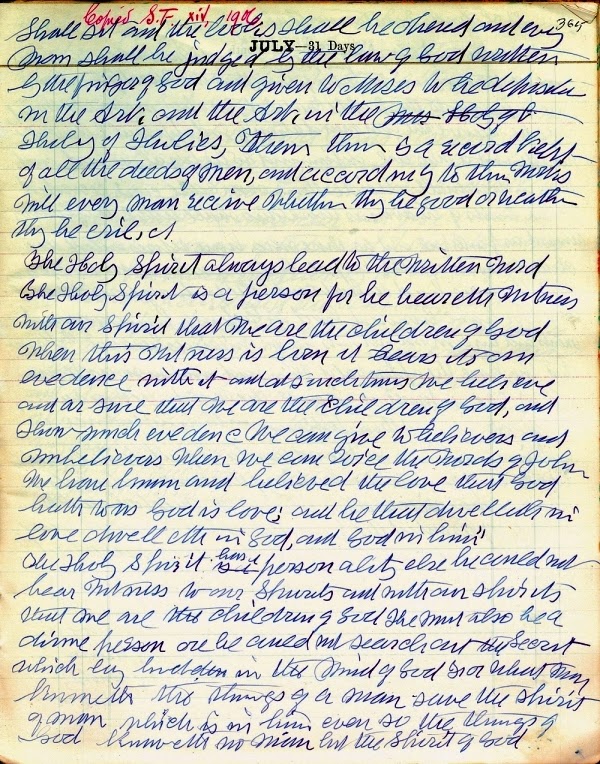 Copied S.T. xiv, 1906
365
Shall sit and the books shall be opened and every
JULY—31 Days
man shall be judged by the law of God written
by the finger of God and given to Moses to be deposited
in the Ark, and the Ark in the Holy of
Holy of Holies, There is a record kept
of all the deeds of men, and according to their works
will every man receive whether they be good or whether
they be evil,
The Holy Spirit always lead to the written word
The Holy Spirit is a person for he beareth witness
with our Spirit that we are the children of God
When this witness is born it bears its own
evidence with it and at such times we believe
and are sure that we are the children of God, and
how much evidence we can give to believers and
unbelievers when we can voice the words of John
We have known and believed the love that God
hath to us God is love; and he that dwelleth in
love dwelleth in God, and God in him;
The Holy Spirit has a personality else he could not
bear witness to our Spirits and with our Spirits
that we are the children of God He must also be a
divine person or he could not search out the secret
which lay hidden in the mind of God For what man
knoweth the things of a man save the Spirit
of man which is in him even so the things of
God knoweth no man but the Spirit of God